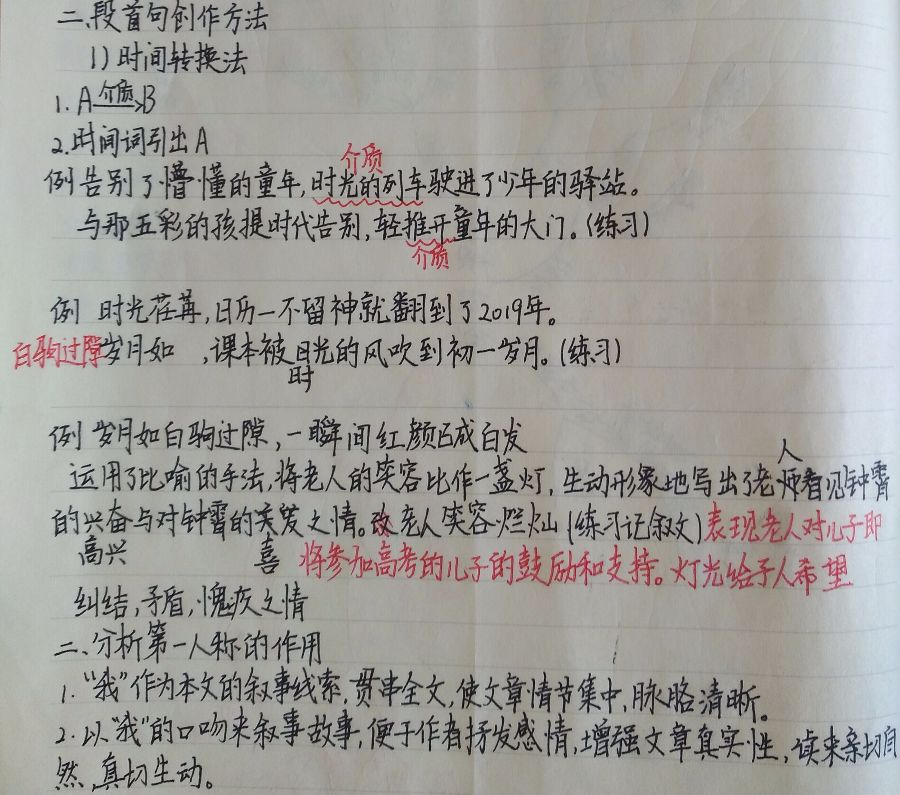 二、段首句创作方法
1）时间转换法
1. A 介质→B
2. 时间词引出A
介质
例 告别了懵懂的童年，时光的列车驶进了少年的驿站。
与那五彩的孩提时代告别，轻推开童年的大门。（练习）
介质
例 时光荏苒，日历一不留神就翻到了2019年。
白驹过隙 岁月如 ，课本被日光的风吹到初一岁月。（练习）
时
例 岁月如白驹过隙，一瞬间红颜已成白发
人
运用了比喻的手法，将老人的笑容比作一盏灯，生动形象地写出了老师看见钟霄
的兴奋与对钟霄的关爱之情。改老人笑容烂灿（练习记叙文）表现老人对儿子即
高兴 喜 将参加高考的儿子的鼓励和支持。灯光给予人希望
纠结，矛盾，愧疚之情
二、分析第一人称的作用
1. “我”作为本文的叙事线索，贯串全文，使文章情节集中，脉胳清晰。
2. 以“我”的口吻来叙事故事，便于作者抒发感情，增强文章真实性，读来亲切自
然，真切生动。